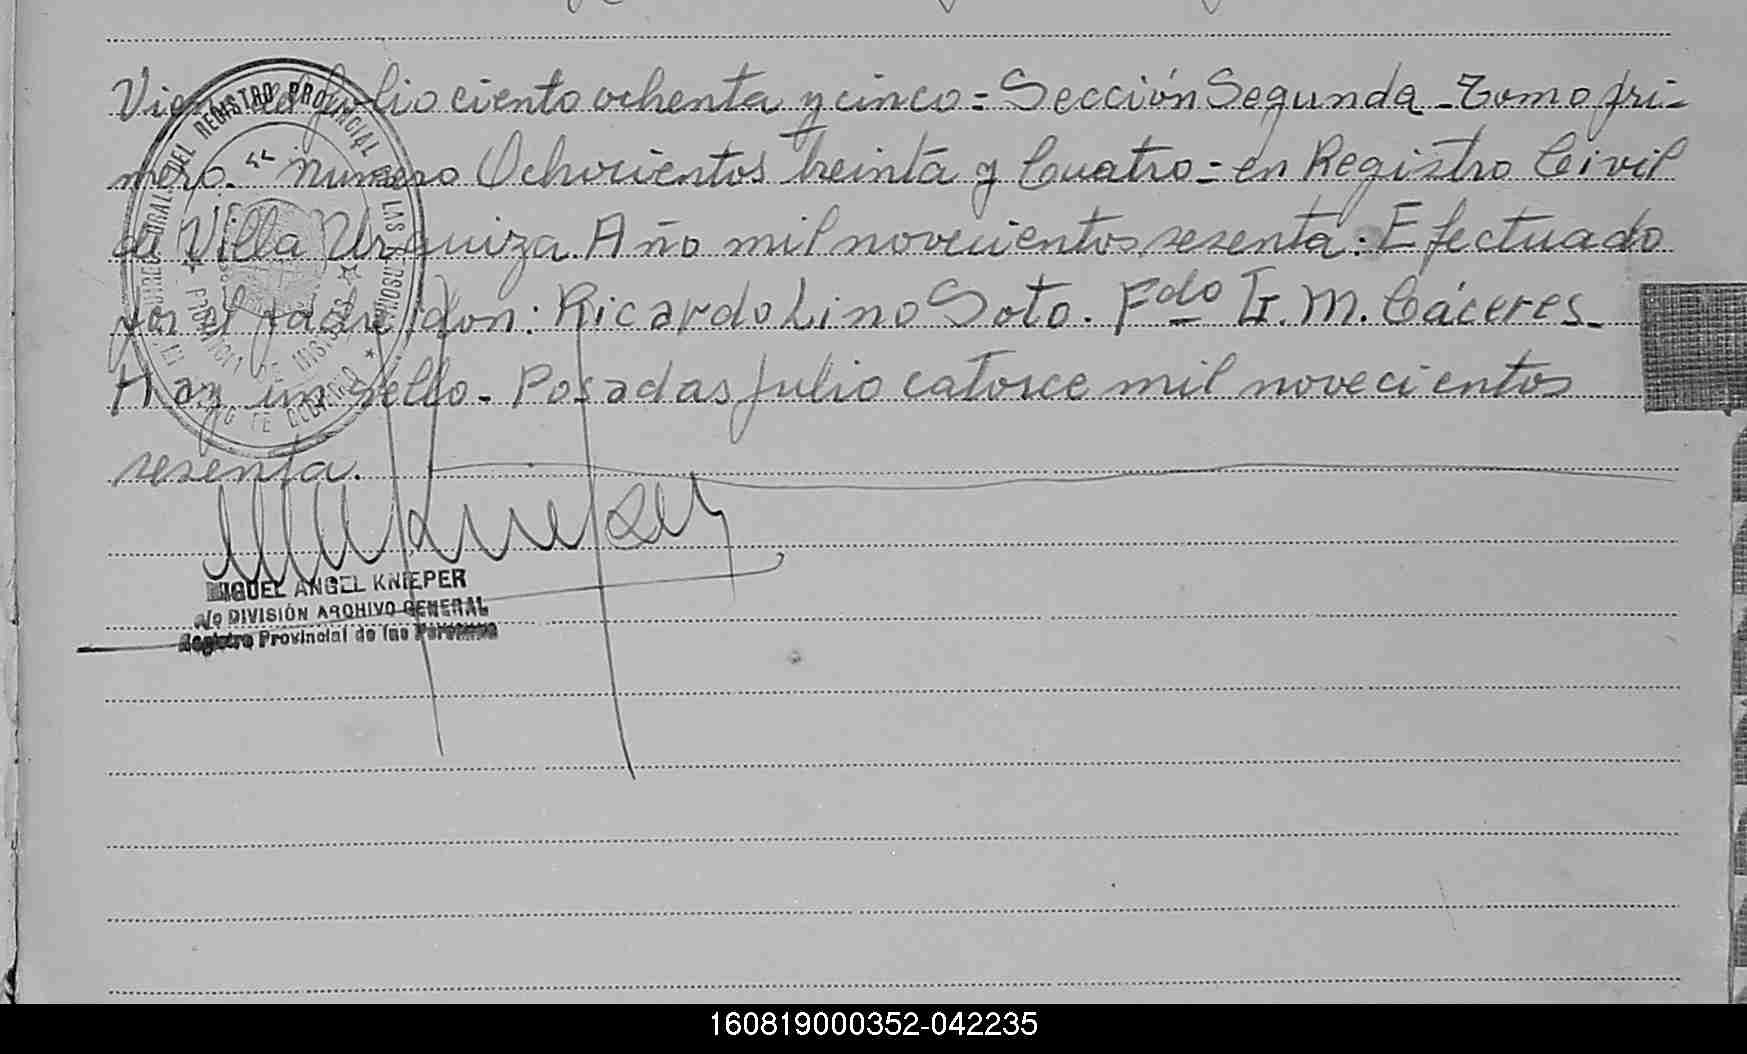 Viene del folio ciento ochenta y cinco = Sección Segunda - Tomo pri-
mero. - número Ochocientos treinta y Cuatro = en Registro Civil
de Villa Urquiza. Año mil novecientos sesenta. Efectuado
por el padre don: Ricardo Lino Soto. Fdo G. M. Cáceres_
Hay un sello. Posadas julio catorce mil novecientos
sesenta.
MIGUEL ANGEL KNIEPER
a/c DIVISIÓN ARCHIVO GENERAL
Registro Provincial de las Personas
DEL REGISTRO PROVINCIAL DE LAS PERSONAS
PROVINCIA DE MISIONES
160819000352-042235